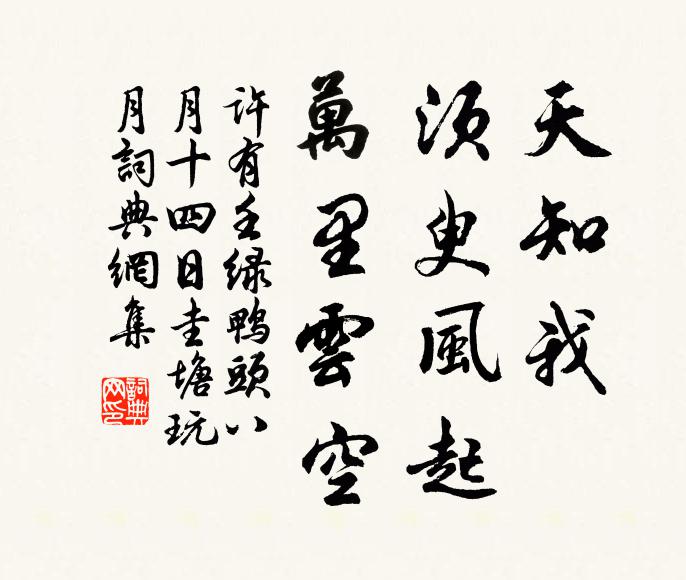 天知我
須臾風起
萬里雲空
許有壬緑鴨頭八
月十四日圭塘玩
月詞典網集
詞典網印